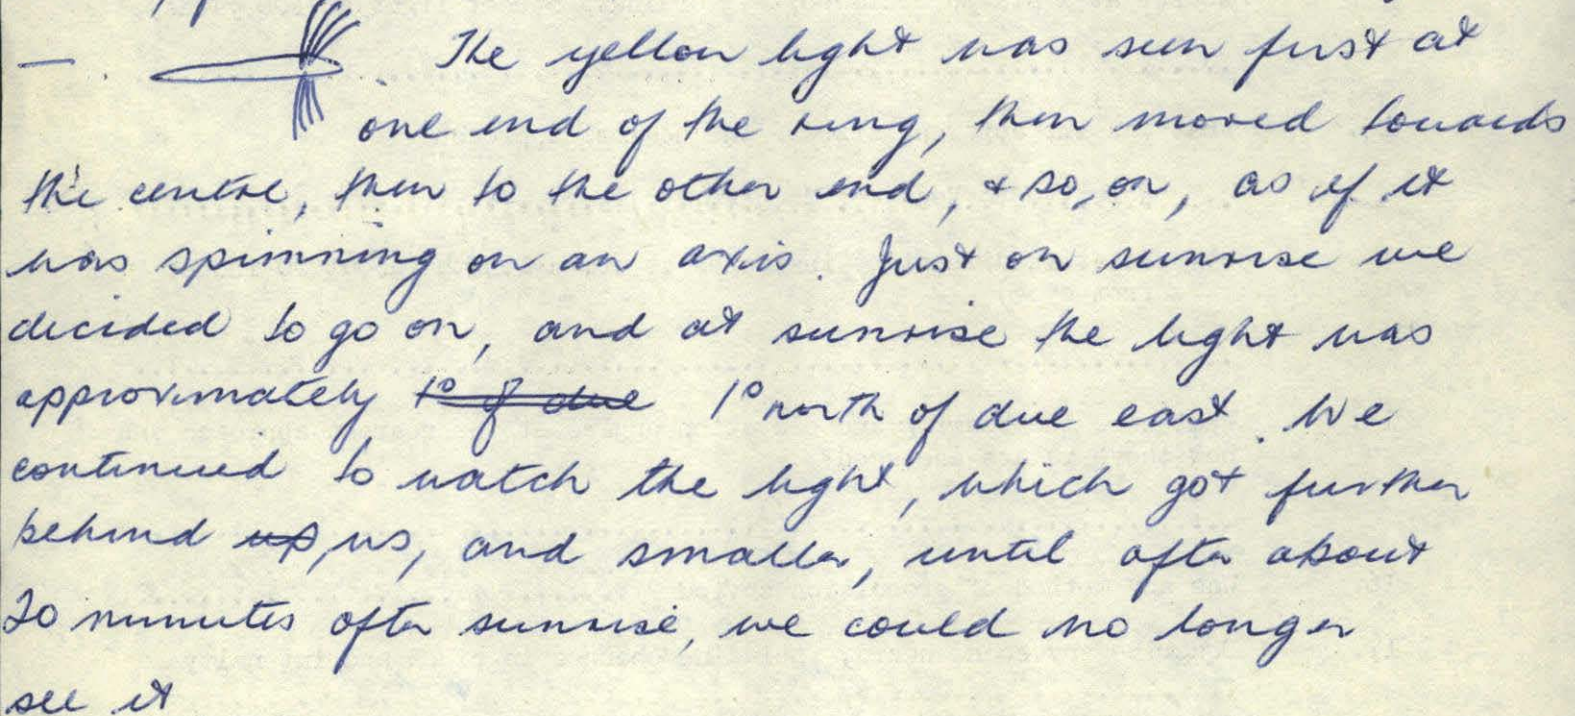 — . The yellow light was seen first at
one end of the ring, then moved towards
the centre, then to the other end, & so, on, as if it
was spinning on an axis. Just on sunrise we
decided to go on, and at sunrise the light was
approximately 1° of due 1° north of due east. We
continued to watch the light, which got further
behind up, us, and smaller, until after about
20 minutes after sunrise, we could no longer
see it